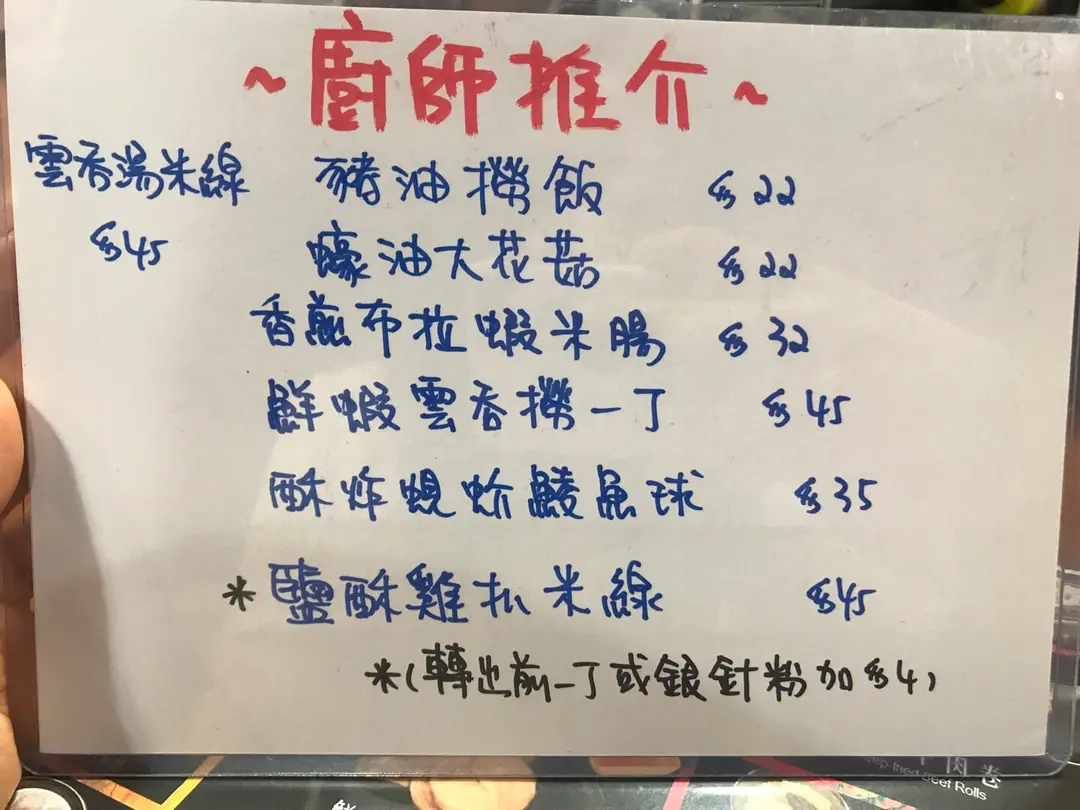 ~廚師推介~
雲吞湯米線
$45
豬油撈飯 $22
蠔油大花菇 $22
香煎布拉蝦米腸 $32
鮮蝦雲吞撈一丁 $45
酥炸蜆蚧鯪魚球 $35
*鹽酥雞扒米線 $45
*(轉出前一丁或銀針粉加$4)
肉卷
Deep-fried Beef Rolls